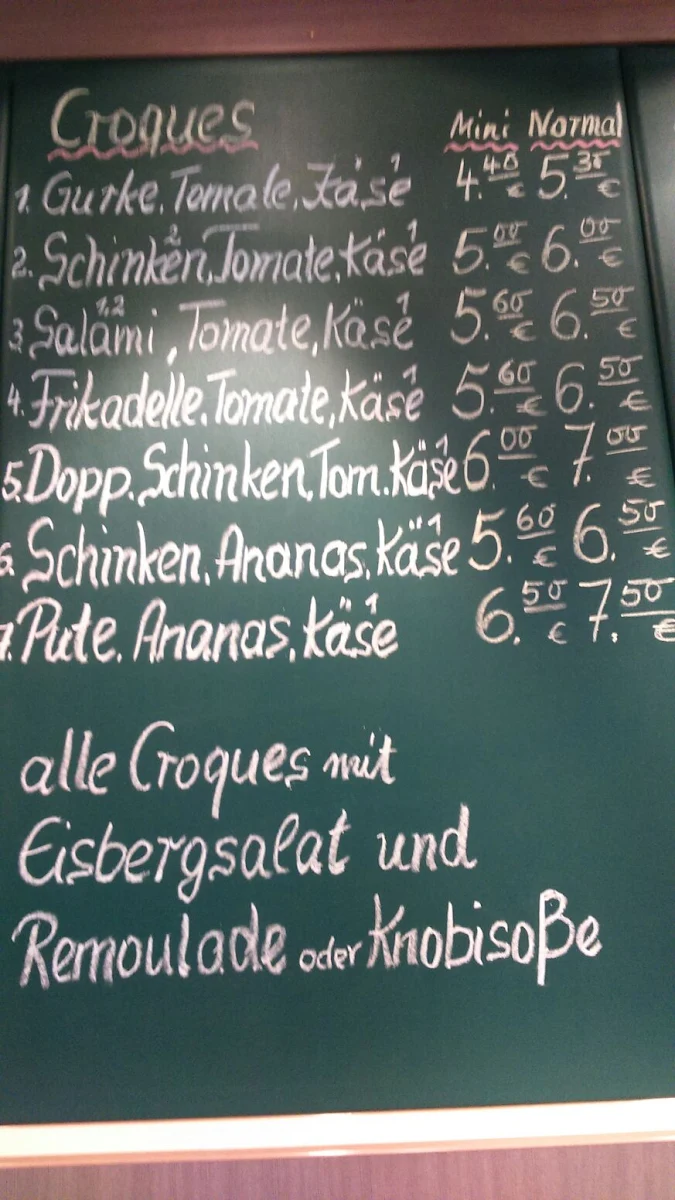 Croques Mini Normal
1. Gurke, Tomate, Käse 1 4.40 € 5.30 €
2. Schinken 2, Tomate, Käse 1 5.00 € 6.00 €
3. Salami 1,2, Tomate, Käse 1 5.60 € 6.50 €
4. Frikadelle, Tomate, Käse 1 5.60 € 6.50 €
5. Dopp. Schinken, Tom. Käse 1 6.00 € 7.00 €
6. Schinken, Ananas, Käse 1 5.60 € 6.50 €
7. Pute, Ananas, Käse 1 6.50 € 7.50 €
alle Croques mit
Eisbergsalat und
Remoulade oder Knobisoße